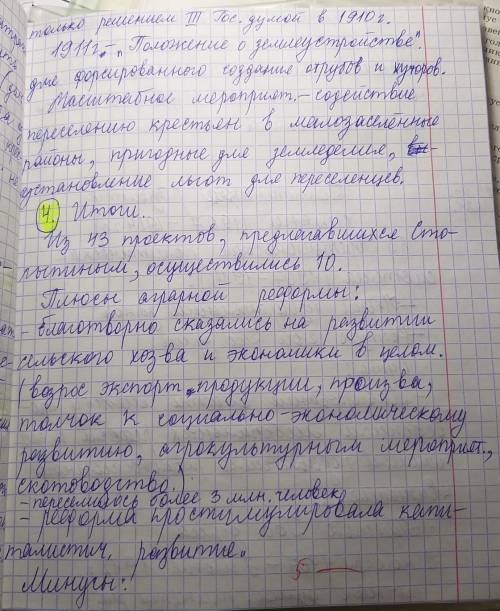 только решением III Гос. думой в 1910 г.
1911 г. – „Положение о землеустройстве".
для форсированного создания отрубов и хуторов.
Масштабное мероприят. – содействие
переселению крестьян в малозаселённые
районы, пригодные для земледелия,
установление льгот для переселенцев.
4. Итоги.
Из 43 проектов, предлагавшихся Сто-
лыпиным, осуществились 10.
Плюсы аграрной реформы:
- благотворно сказались на развитии
сельского хоз-ва и экономики в целом.
(возрос экспорт продукции, произ-ва,
толчок к социально-экономическому
развитию, агрокультурным мероприят.,
скотоводство.)
- переселилось более 3 млн. человек
- реформа простимулировала капи-
талистич. развитие.
Минусы:
5